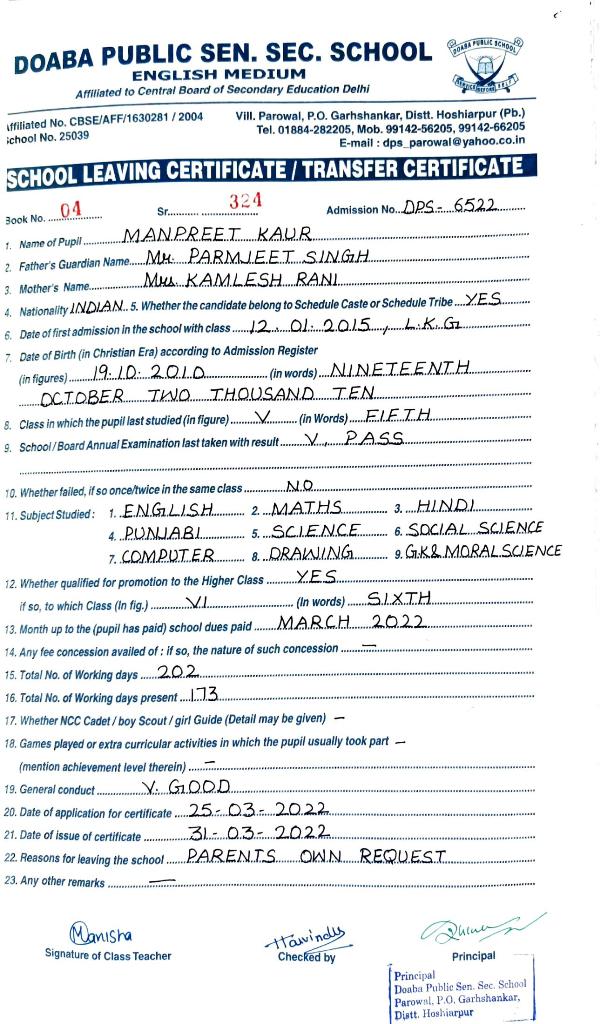 DOABA PUBLIC SEN. SEC. SCHOOL
ENGLISH MEDIUM
Affiliated to Central Board of Secondary Education Delhi
DOABA PUBLIC SCHOOL
ffiliated No. CBSE/AFF/1630281 / 2004
School No. 25039
Vill. Parowal, P.O. Garhshankar, Distt. Hoshiarpur (Pb.)
Tel. 01884-282205, Mob. 99142-56205, 99142-66205
E-mail : dps_parowal@yahoo.co.in
SCHOOL LEAVING CERTIFICATE / TRANSFER CERTIFICATE
Book No. 04 Sr. 324 Admission No. DPS- 6522
1. Name of Pupil MANPREET KAUR
2. Father's Guardian Name Mr. PARMJEET SINGH
3. Mother's Name Mrs. KAMLESH RANI
4. Nationality INDIAN 5. Whether the candidate belong to Schedule Caste or Schedule Tribe YES
6. Date of first admission in the school with class 12.01.2015, L.K.G
7. Date of Birth (in Christian Era) according to Admission Register
(in figures) 19.10.2010 (in words) NINETEENTH
OCTOBER TWO THOUSAND TEN
8. Class in which the pupil last studied (in figure) V (in Words) FIFTH
9. School / Board Annual Examination last taken with result V, PASS
10. Whether failed, if so once/twice in the same class NO
11. Subject Studied : 1. ENGLISH 2. MATHS 3. HINDI
4. PUNJABI 5. SCIENCE 6. SOCIAL SCIENCE
7. COMPUTER 8. DRAWING 9. G.K& MORAL SCIENCE
12. Whether qualified for promotion to the Higher Class YES
if so, to which Class (In fig.) VI (In words) SIXTH
13. Month up to the (pupil has paid) school dues paid MARCH 2022
14. Any fee concession availed of : if so, the nature of such concession —
15. Total No. of Working days 202
16. Total No. of Working days present 173
17. Whether NCC Cadet / boy Scout / girl Guide (Detail may be given) —
18. Games played or extra curricular activities in which the pupil usually took part —
(mention achievement level therein) —
19. General conduct V. GOOD
20. Date of application for certificate 25-03-2022
21. Date of issue of certificate 31-03-2022
22. Reasons for leaving the school PARENTS OWN REQUEST
23. Any other remarks —
Manisha
Signature of Class Teacher
Checked by
Principal
Principal
Doaba Public Sen. Sec. School
Parowal, P.O. Garhshankar,
Distt. Hoshiarpur